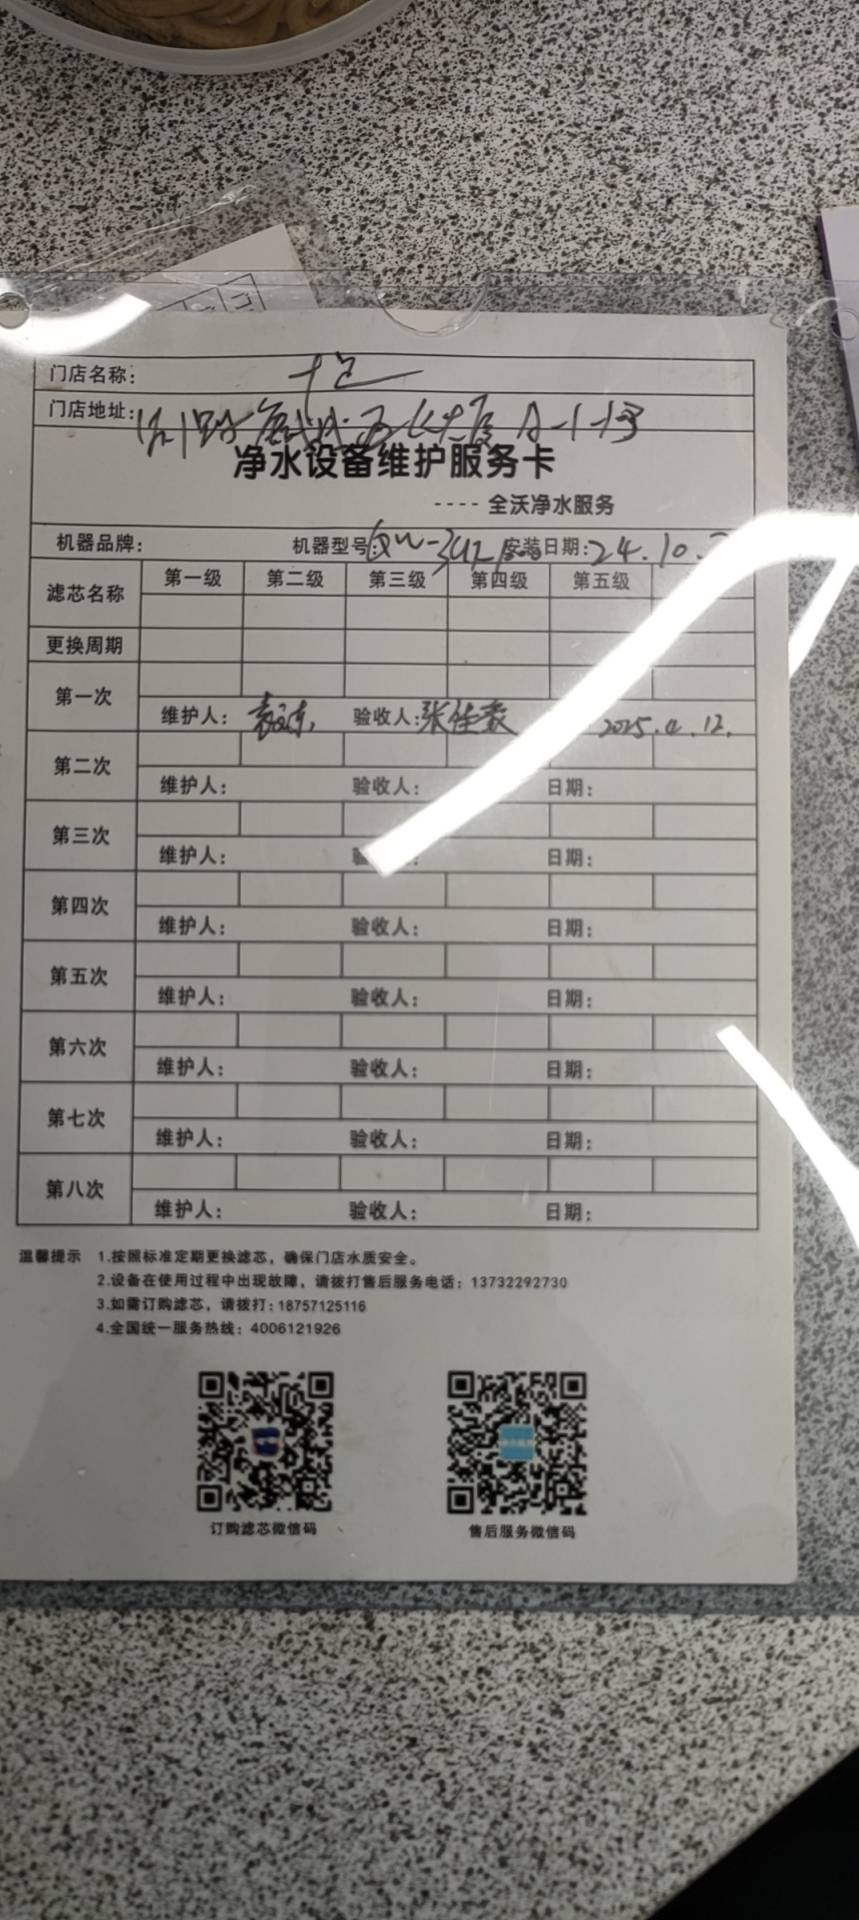 门店名称:
门店地址: A-1-1号
净水设备维护服务卡
---- 全沃净水服务
机器品牌: 机器型号: QW- 安装日期: 24.10.
滤芯名称 第一级 第二级 第三级 第四级 第五级
更换周期
第一次
维护人: 验收人: 张佳 2025.4.12.
第二次
维护人: 验收人: 日期:
第三次
维护人: 日期:
第四次
维护人: 验收人: 日期:
第五次
维护人: 验收人: 日期:
第六次
维护人: 验收人: 日期:
第七次
维护人: 验收人: 日期:
第八次
维护人: 验收人: 日期:
温馨提示 1.按照标准定期更换滤芯，确保门店水质安全。
2.设备在使用过程中出现故障，请拨打售后服务电话：13732292730
3.如需订购滤芯，请拨打：18757125116
4.全国统一服务热线：4006121926
订购滤芯微信码 售后服务微信码